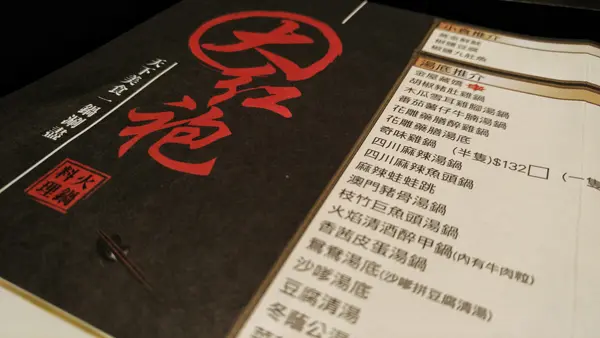 大紅袍
天下美食一鍋涮盡
火鍋
料理
小食推介
黃金鮮鮁
椒鹽豆腐
椒鹽九肚魚
湯底推介
金屋藏嬌
胡椒豬肚雞鍋
木瓜雪耳雞腳湯鍋
番茄薯仔牛腩湯鍋
花雕藥膳醉雞鍋
花雕藥膳湯底
奇味雞鍋 (半隻)$132□ (一隻
四川麻辣湯鍋
四川麻辣魚頭鍋
麻辣蛙蛙跳
澳門豬骨湯鍋
枝竹巨魚頭湯鍋
火焰清酒醉甲鍋(內有牛肉粒)
香茜皮蛋湯鍋
鴛鴦湯底(沙嗲拼豆腐清湯)
沙嗲湯底
豆腐清湯
冬蔭公湯